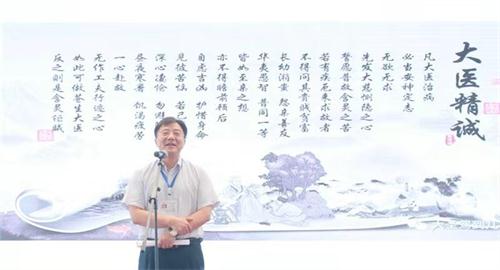 大医精诚
凡大医治病
必当安神定志
无欲无求
先发大慈恻隐之心
誓愿普救含灵之苦
若有疾厄来求救者
不得问其贵贱贫富
长幼妍蚩 怨亲善友
华夷愚智 普同一等
皆如至亲之想
亦不得瞻前顾后
自虑吉凶 护惜身命
见彼苦恼 若己
深心凄怆 勿避
昼夜寒暑 饥渴疲劳
一心赴救
无作工夫行迹之心
如此可做苍生大医
反之则是含灵巨贼